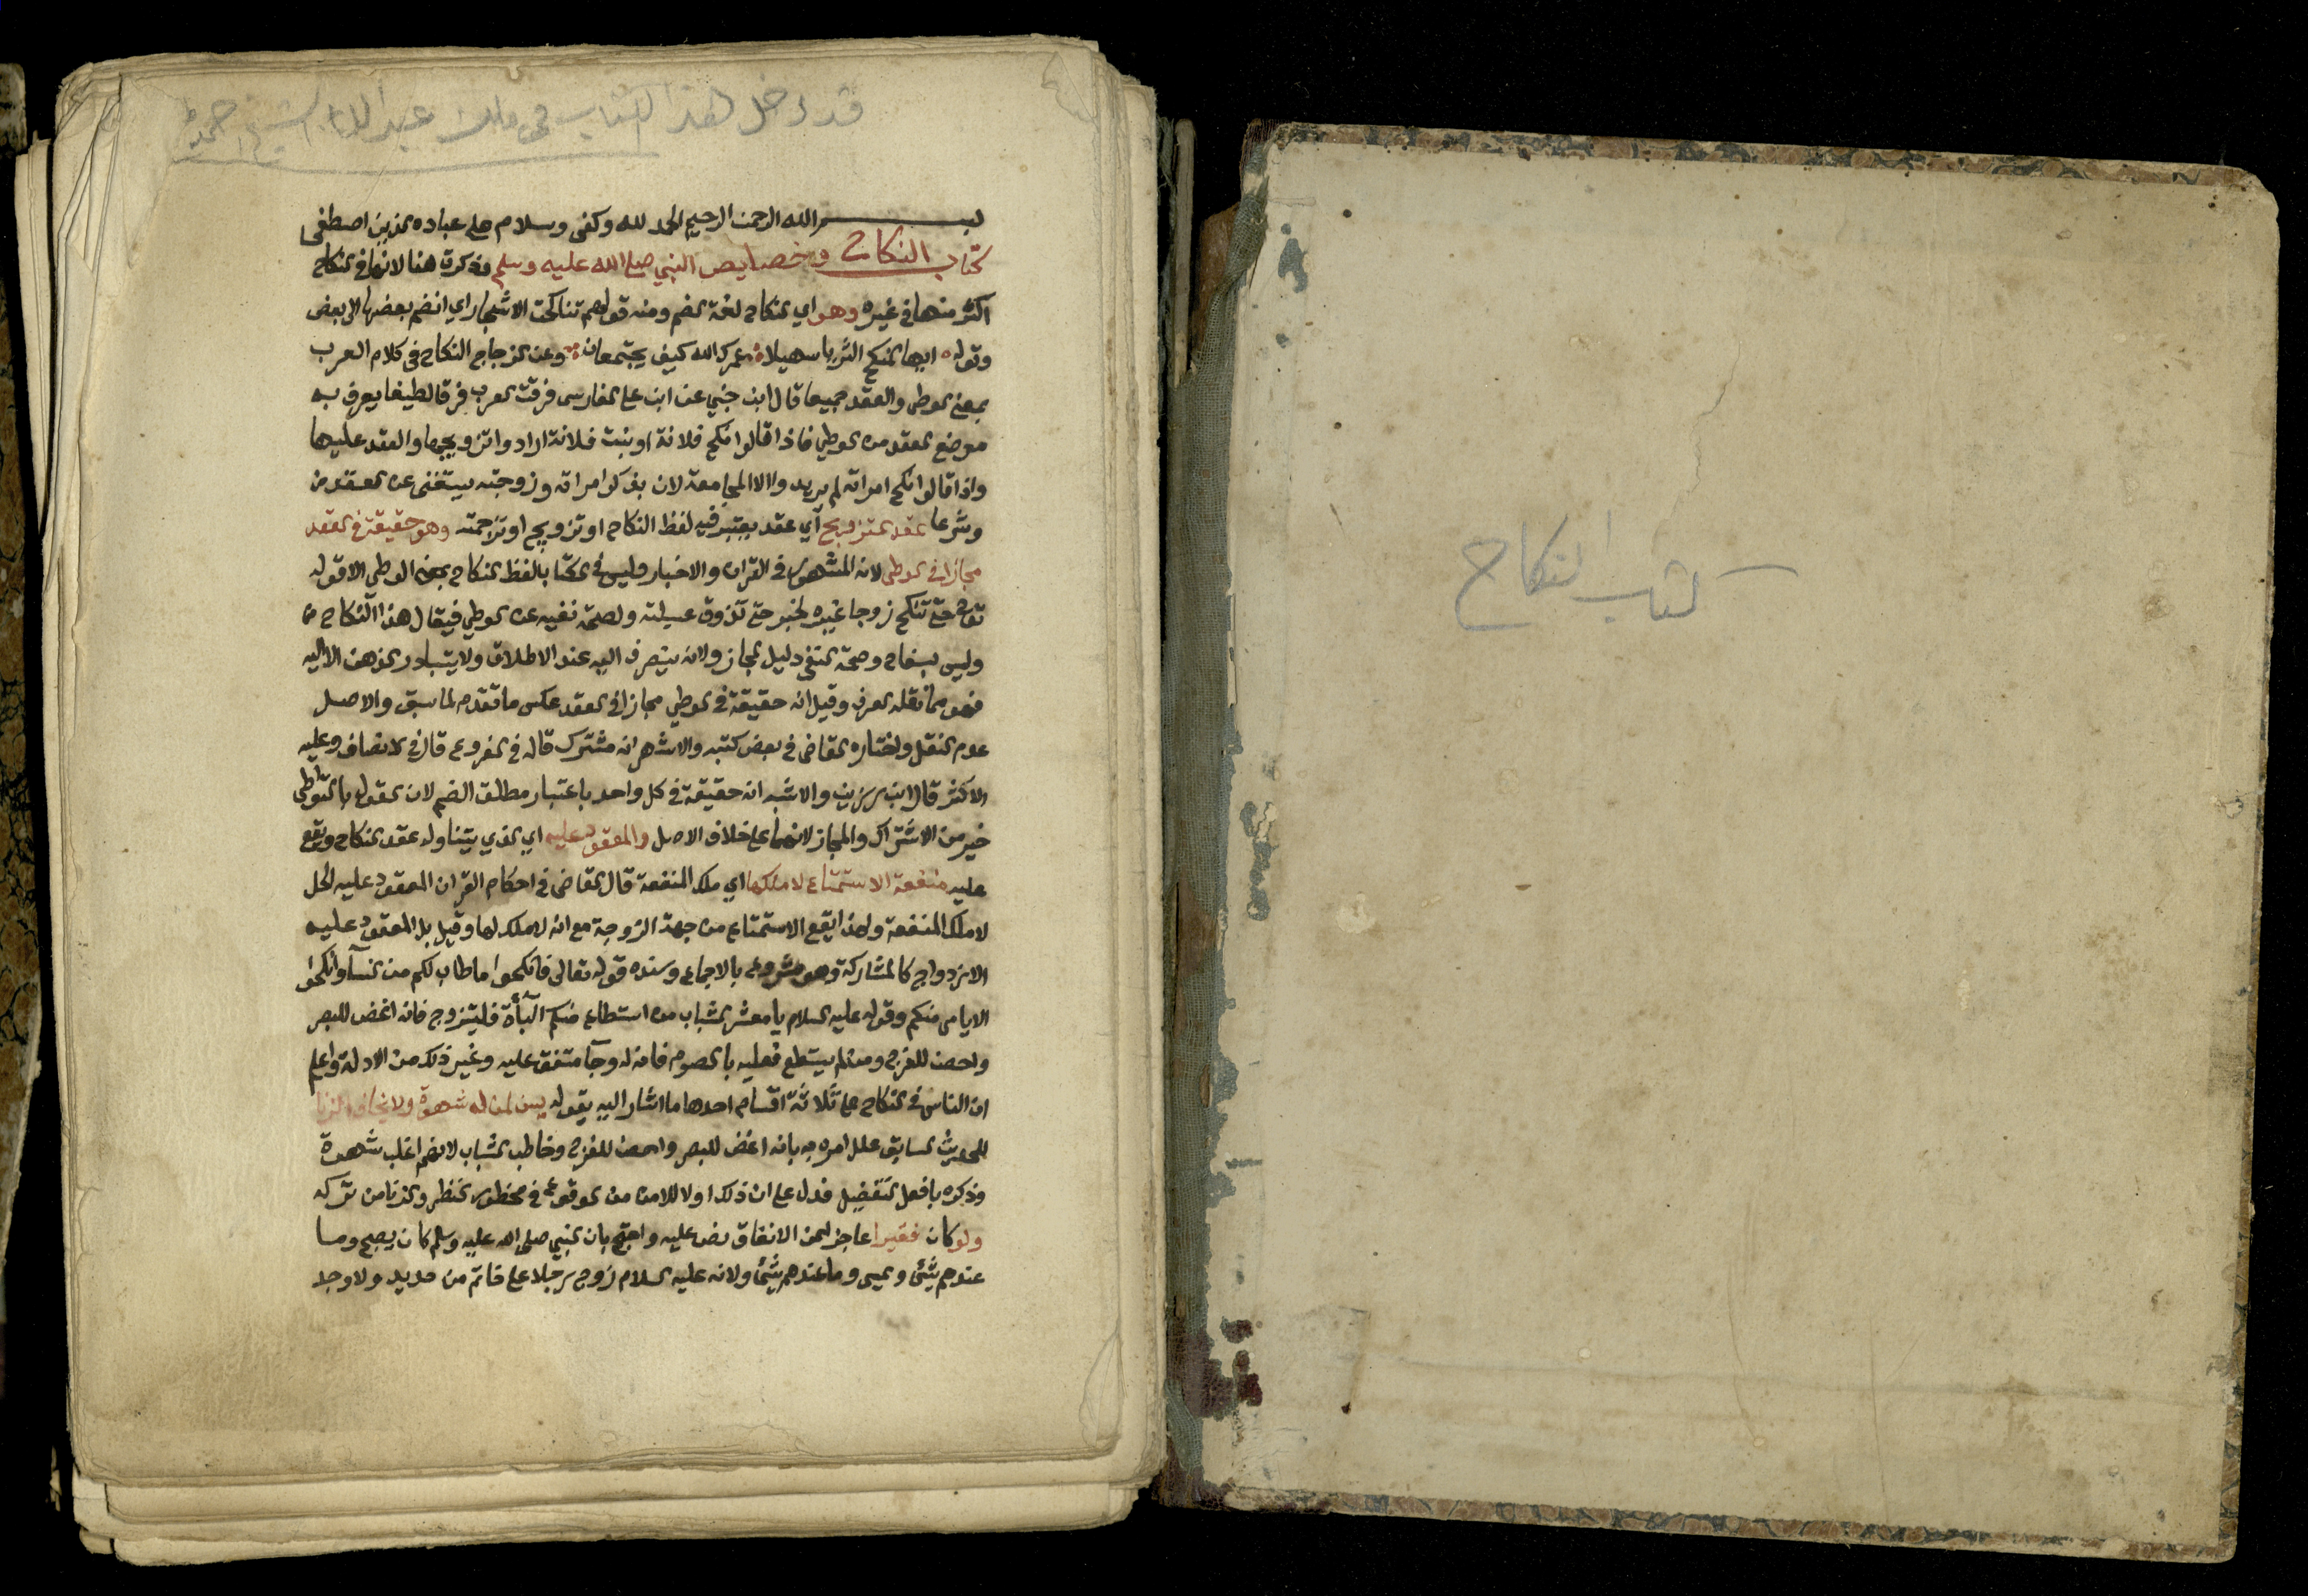 كتاب النكاح
قد دخل هذا الكتاب في ملك عبد الله
بسم الله الرحمن الرحيم الحمد لله وكفى وسلام على عباده الذين اصطفى
كتاب النكاح وخصايص النبي صلى الله عليه وسلم وذكرت هنا لانها في النكاح
اكثر منها في غيره وهو اي النكاح لغة الضم ومنه قولهم تناكحت الاشجار اي انضم بعضها الى بعض
وقوله ايها المنكح الثريا سهيلا عمرك الله كيف يجتمعان وعن الزجاج النكاح في كلام العرب
بمعنى الوطي والعقد جميعا قال ابن جني عن ابن علي الفارسي فرقت العرب فرقا لطيفا يعرف به
موضع العقد من الوطي فاذا قالوا نكح فلانة او بنت فلانة ارادوا تزويجها والعقد عليها
واذا قالوا نكح امراته لم يريدوا الا المجامعة لان بذكر امراته وزوجته يستغنى عن العقد
وشرعا عقد التزويج أي عقد يعتبر فيه لفظ النكاح او تزويج او ترجمته وهو حقيقة في العقد
مجازا في الوطي لانه المشهور في القران والاخبار وليس في الكتاب لفظ النكاح بمعنى الوطي الا قوله
حتى تنكح زوجا غيره لخبر حتى تذوق عسيلته ولصحة نفيه عن الوطي فيقال هذا النكاح
وليس بسفاح وصحة النفي دليل المجاز ولانه ينصرف اليه عند الاطلاق ولا يتبادر الذهن الا اليه
فهو مما نقله العرف وقيل انه حقيقة في الوطي مجازا في العقد عكس ما تقدم لما سبق والاصل
عدم النقل واختاره القاضي في بعض كتبه والاشهر انه مشترك قاله في الفروع قال في الانصاف وعليه
الاكثر قال ابن رزين والاشبه انه حقيقة في كل واحد باعتبار مطلق الضم لان القول بالتواطي
خير من الاشتراك والمجاز لانهما على خلاف الاصل والمعقود عليه اي الذي يتناوله عقد النكاح ويقع
عليه منفعة الاستمتاع لا ملكها اي ملك المنفعة قال القاضي في احكام القران المعقود عليه الحل
لا ملك المنفعة ولهذا يقع الاستمتاع من جهة الزوجة مع انه لا ملك لها وقيل بل المعقود عليه
الازدواج كالمشاركة وهو مشروع بالاجماع وسنده قوله تعالى فانكحوا ما طاب لكم من النسآ وانكحوا
الايامى منكم وقوله عليه السلام يا معشر الشباب من استطاع منكم البآءة فليتزوج فانه اغض للبصر
واحصن للفرج ومن لم يستطع فعليه بالصوم فانه له وجآ متفق عليه وغير ذلك من الادلة واعلم
ان الناس في النكاح على ثلاثة اقسام احدها ما اشار اليه بقوله يسن لمن له شهوة ولا يخاف الزنا
للحديث السابق علل امره به بانه اغض للبصر واحصن للفرج وخاطب الشباب لانهم اغلب شهوة
وذكره بافعل التفضيل فدل على ان ذلك اولا للامن من الوقوع في محظور النظر والزنا من تركه
ولو كان فقيرا عاجزا عن الانفاق نص عليه واحتج بان النبي صلى الله عليه وسلم كان يصبح وما
عندهم شئ ويمسي وما عندهم شئ ولانه عليه السلام زوج رجلا على خاتم من حديد ولا وجد